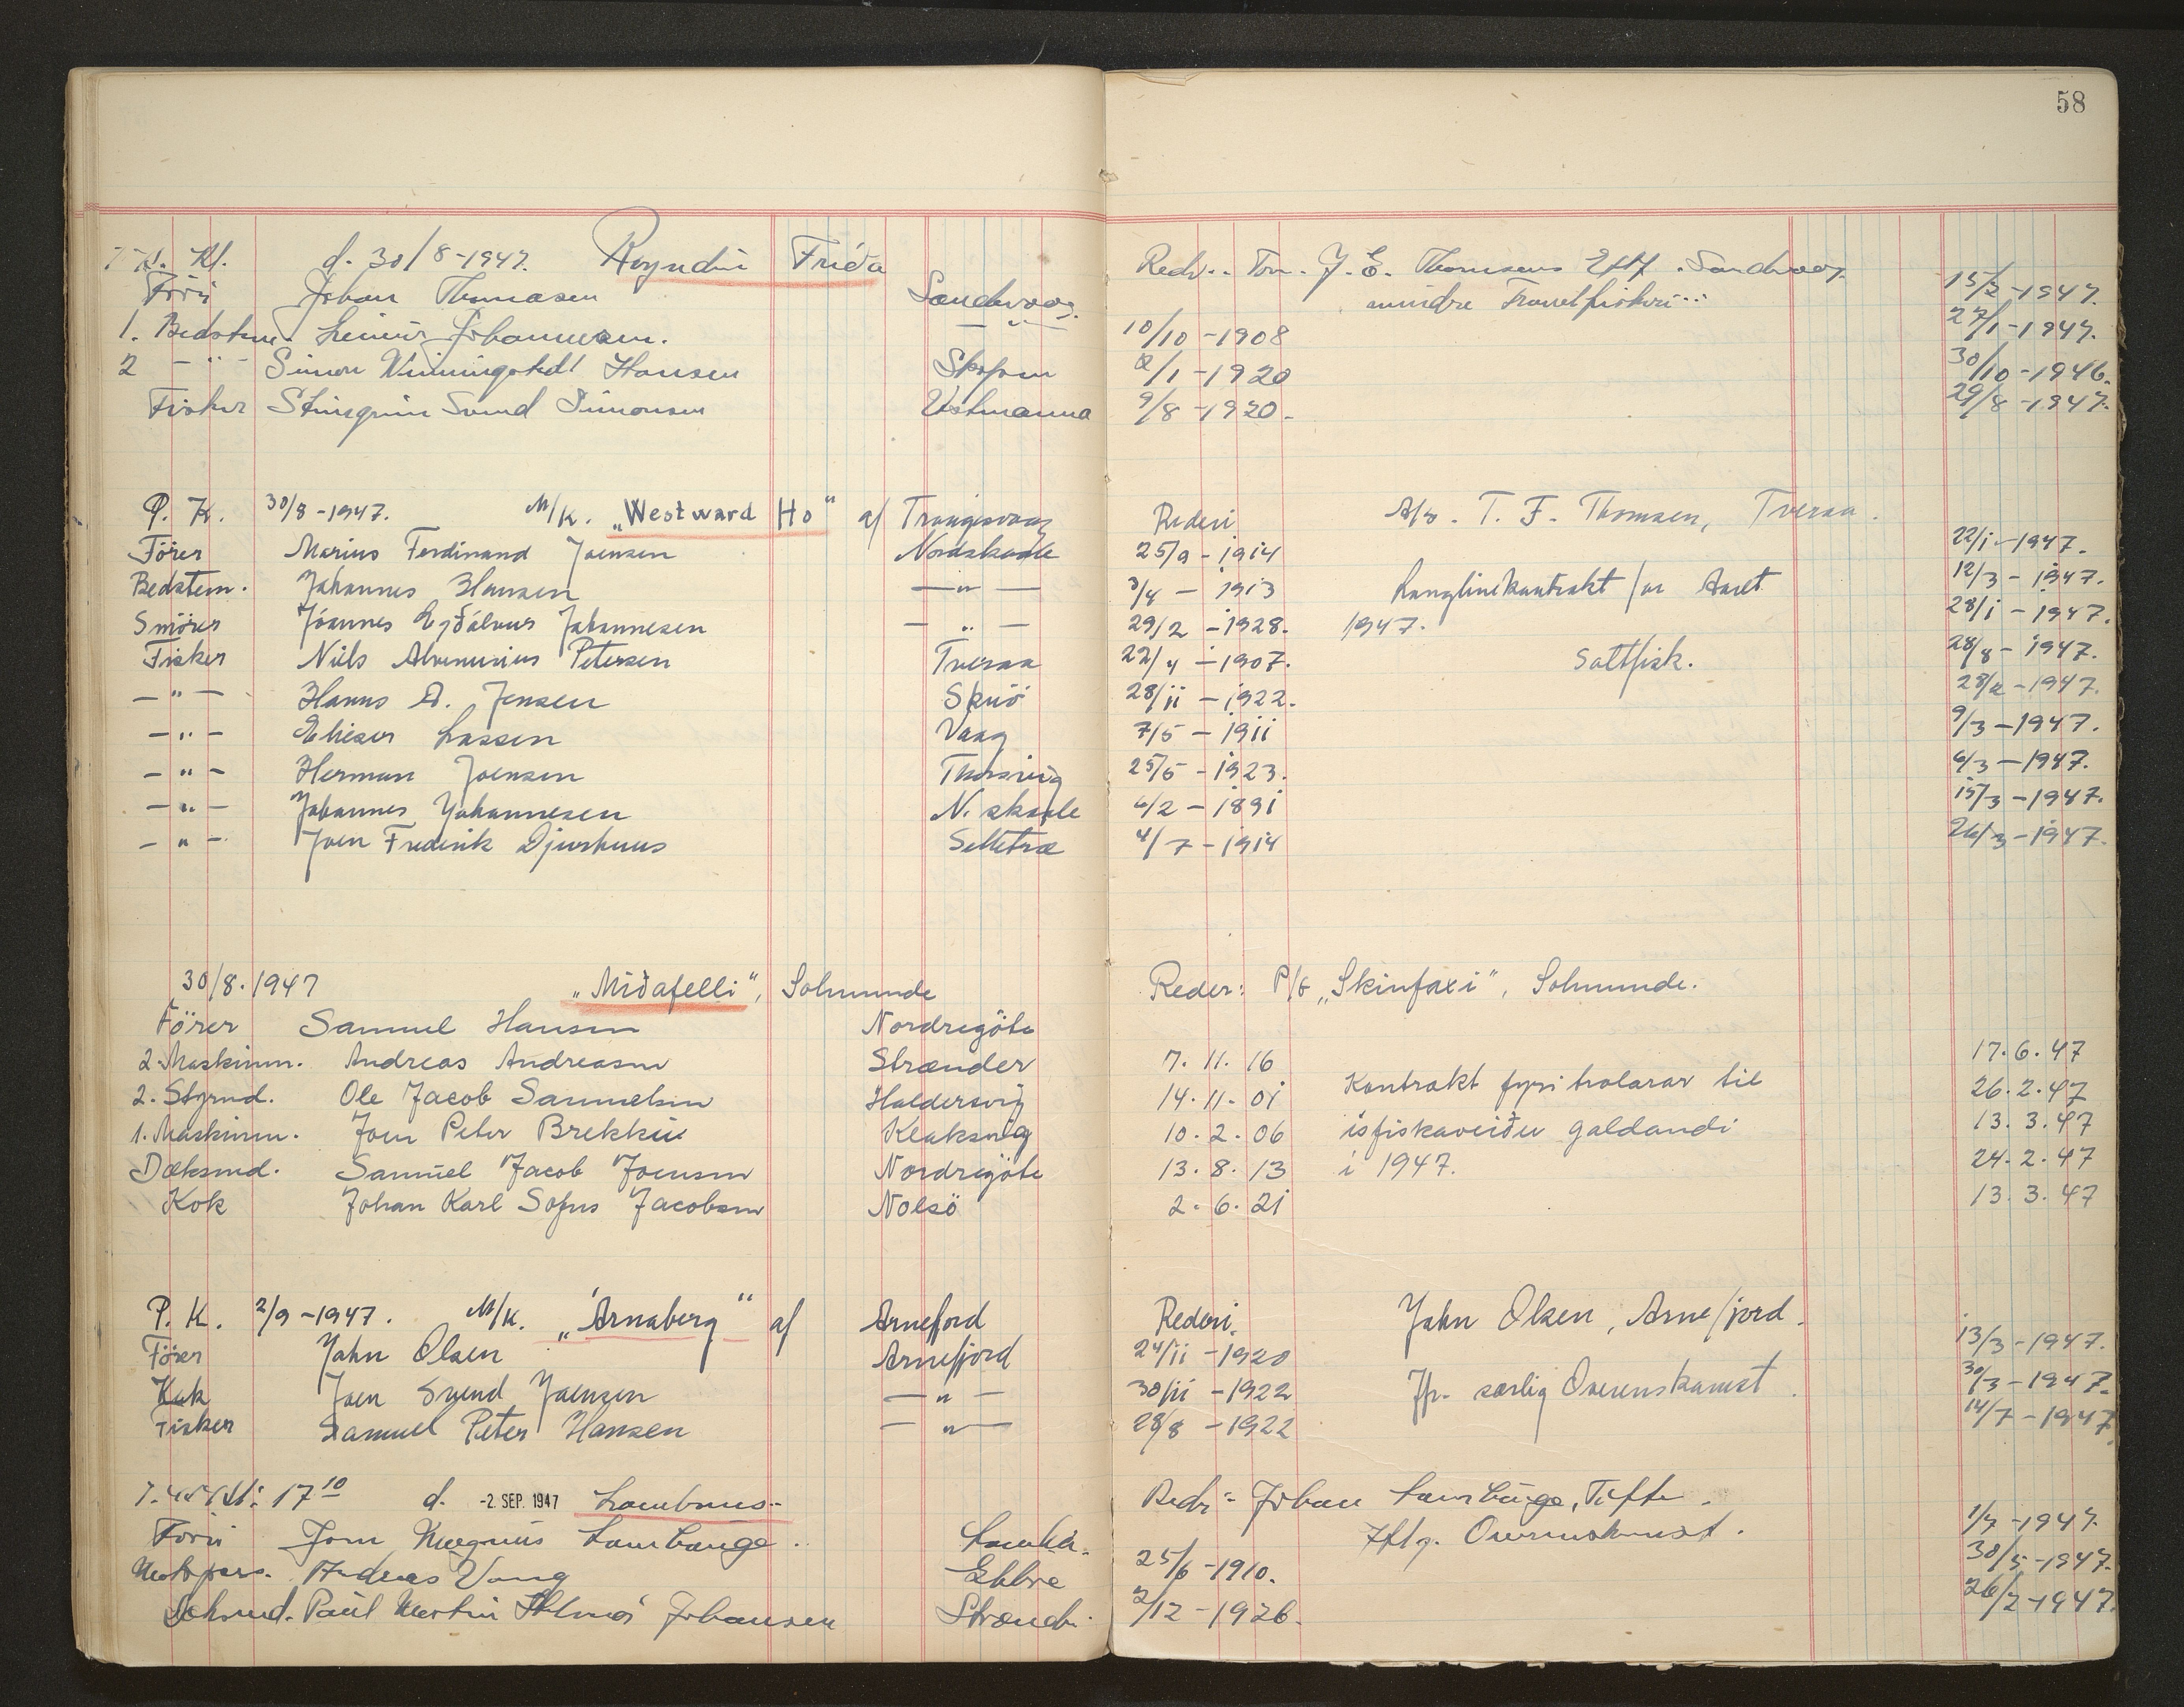 58
d. 30/8-1947. Royndin Frida Redr.. Ton. J. E. Thomsens Eftf. Sandvaag.
Förer Johan Thomasen Sandvaag. mindre Trawlfiskeri... 15/2-1947.
1. Bedstem. Heinir Johannesen. — " — 10/10-1908 27/1-1947.
2 - " - Simon Winningstedt Hansen Skopun 2/1-1920 30/10-1946.
Fisker Steingrim Svend Simonsen Vestmanna 9/8-1920. 29/8-1947.
P. K. 30/8-1947. M/K. „Westward Ho" af Trangisvaag Rederi A/s. T. F. Thomsen, Tveraa.
Förer Marius Ferdinand Joensen Nordskaale 25/9-1914 22/1-1947.
Bedstem. Johannes Hansen — " — 3/4 - 1913 Langlinekontrakt for Aaret 12/3-1947.
Smörer Jóannes Ejdálvur Johannesen — " — 29/2-1928. 1947. 28/1-1947.
Fisker Niels Alvenurius Petersen Tveraa 22/4-1907. Saltfisk. 28/8-1947.
— " — Hanus A. Jensen Skuö 28/11-1922. 28/2-1947.
— " — Elieser Lassen Vaag 7/5-1911 9/3-1947.
— " — Herman Joensen Thorsvig 25/5-1923. 6/3-1947.
— " — Johannes Johannesen N. skaale 6/2-1891 15/3-1947.
— " — Joen Frederik Djurhuus Selletræ 4/7-1914 26/3-1947.
30/8.1947 „Midafelli", Solmunde Reder: P/f „Skinfaxi", Solmunde.
Förer Samuel Hansen Nordregöte
2. Maskinm. Andreas Andreasen Strænder 7. 11. 16 17. 6. 47
2. Styrmd. Ole Jacob Samuelsen Haldersvig 14. 11. 01 Kontrakt fyri trolarar til 26. 2. 47
1. Maskinm. Joen Peter Brekkur Klaksvig 10. 2. 06 ísfiskaveiðu galdandi 13. 3. 47
Dæksmd. Samuel Jacob Joensen Nordregöte 13. 8. 13 i 1947. 24. 2. 47
Kok Johan Karl Sofus Jacobsen Nolsö 2. 6. 21 13. 3. 47
P. K. 2/9-1947. M/K. „Arnaberg" af Arnefjord Rederi. John Olsen, Arnefjord.
Förer John Olsen Arnefjord 24/11-1920 13/3-1947.
Kok Joen Svend Joensen — " — 30/11-1922 Ifr. særlig Overenskomst. 30/3-1947.
Fisker Samuel Peter Hansen — " — 28/8-1922 14/7-1947
17 10 d. -2. SEP. 1947 Lambanus Redr: Johan Lamhauge, Tofte.
Förer Jom Magnus Lamhauge. Lamba. Iflg. Overenskomst. 1/7-1947.
Motorpass. Andreas Vang Ebbre 25/6-1910. 30/5-1947.
Dæksmd. Paul Martin Johansen Strændr. 2/12-1926. 26/2-1947.